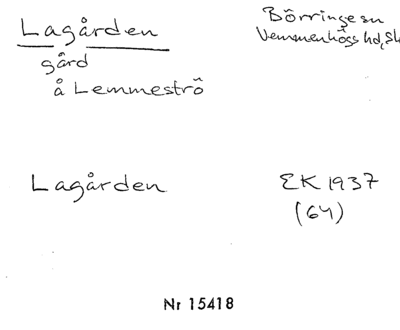 Lagården
gård
å Lemmeströ
Börringe sn
Vemmenhögs hd, Sk
Lagården
EK 1937
(64)
Nr 15418